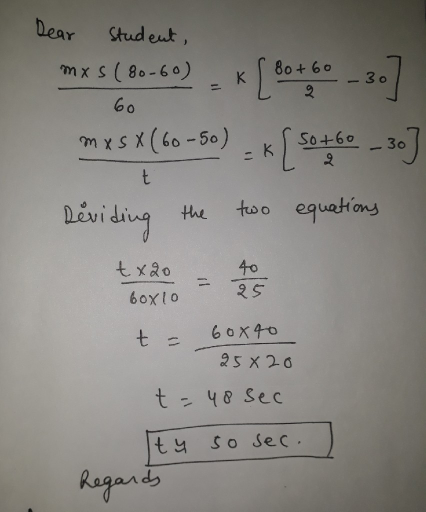 Dear Student,
m x s (80-60) / 60 = K [ 80+60 / 2 - 30 ]
m x s x (60-50) / t = K [ 50+60 / 2 - 30 ]
Dividing the two equations
t x 20 / 60 x 10 = 40 / 25
t = 60 x 40 / 25 x 20
t = 48 Sec
t ≃ 50 sec.
Regards